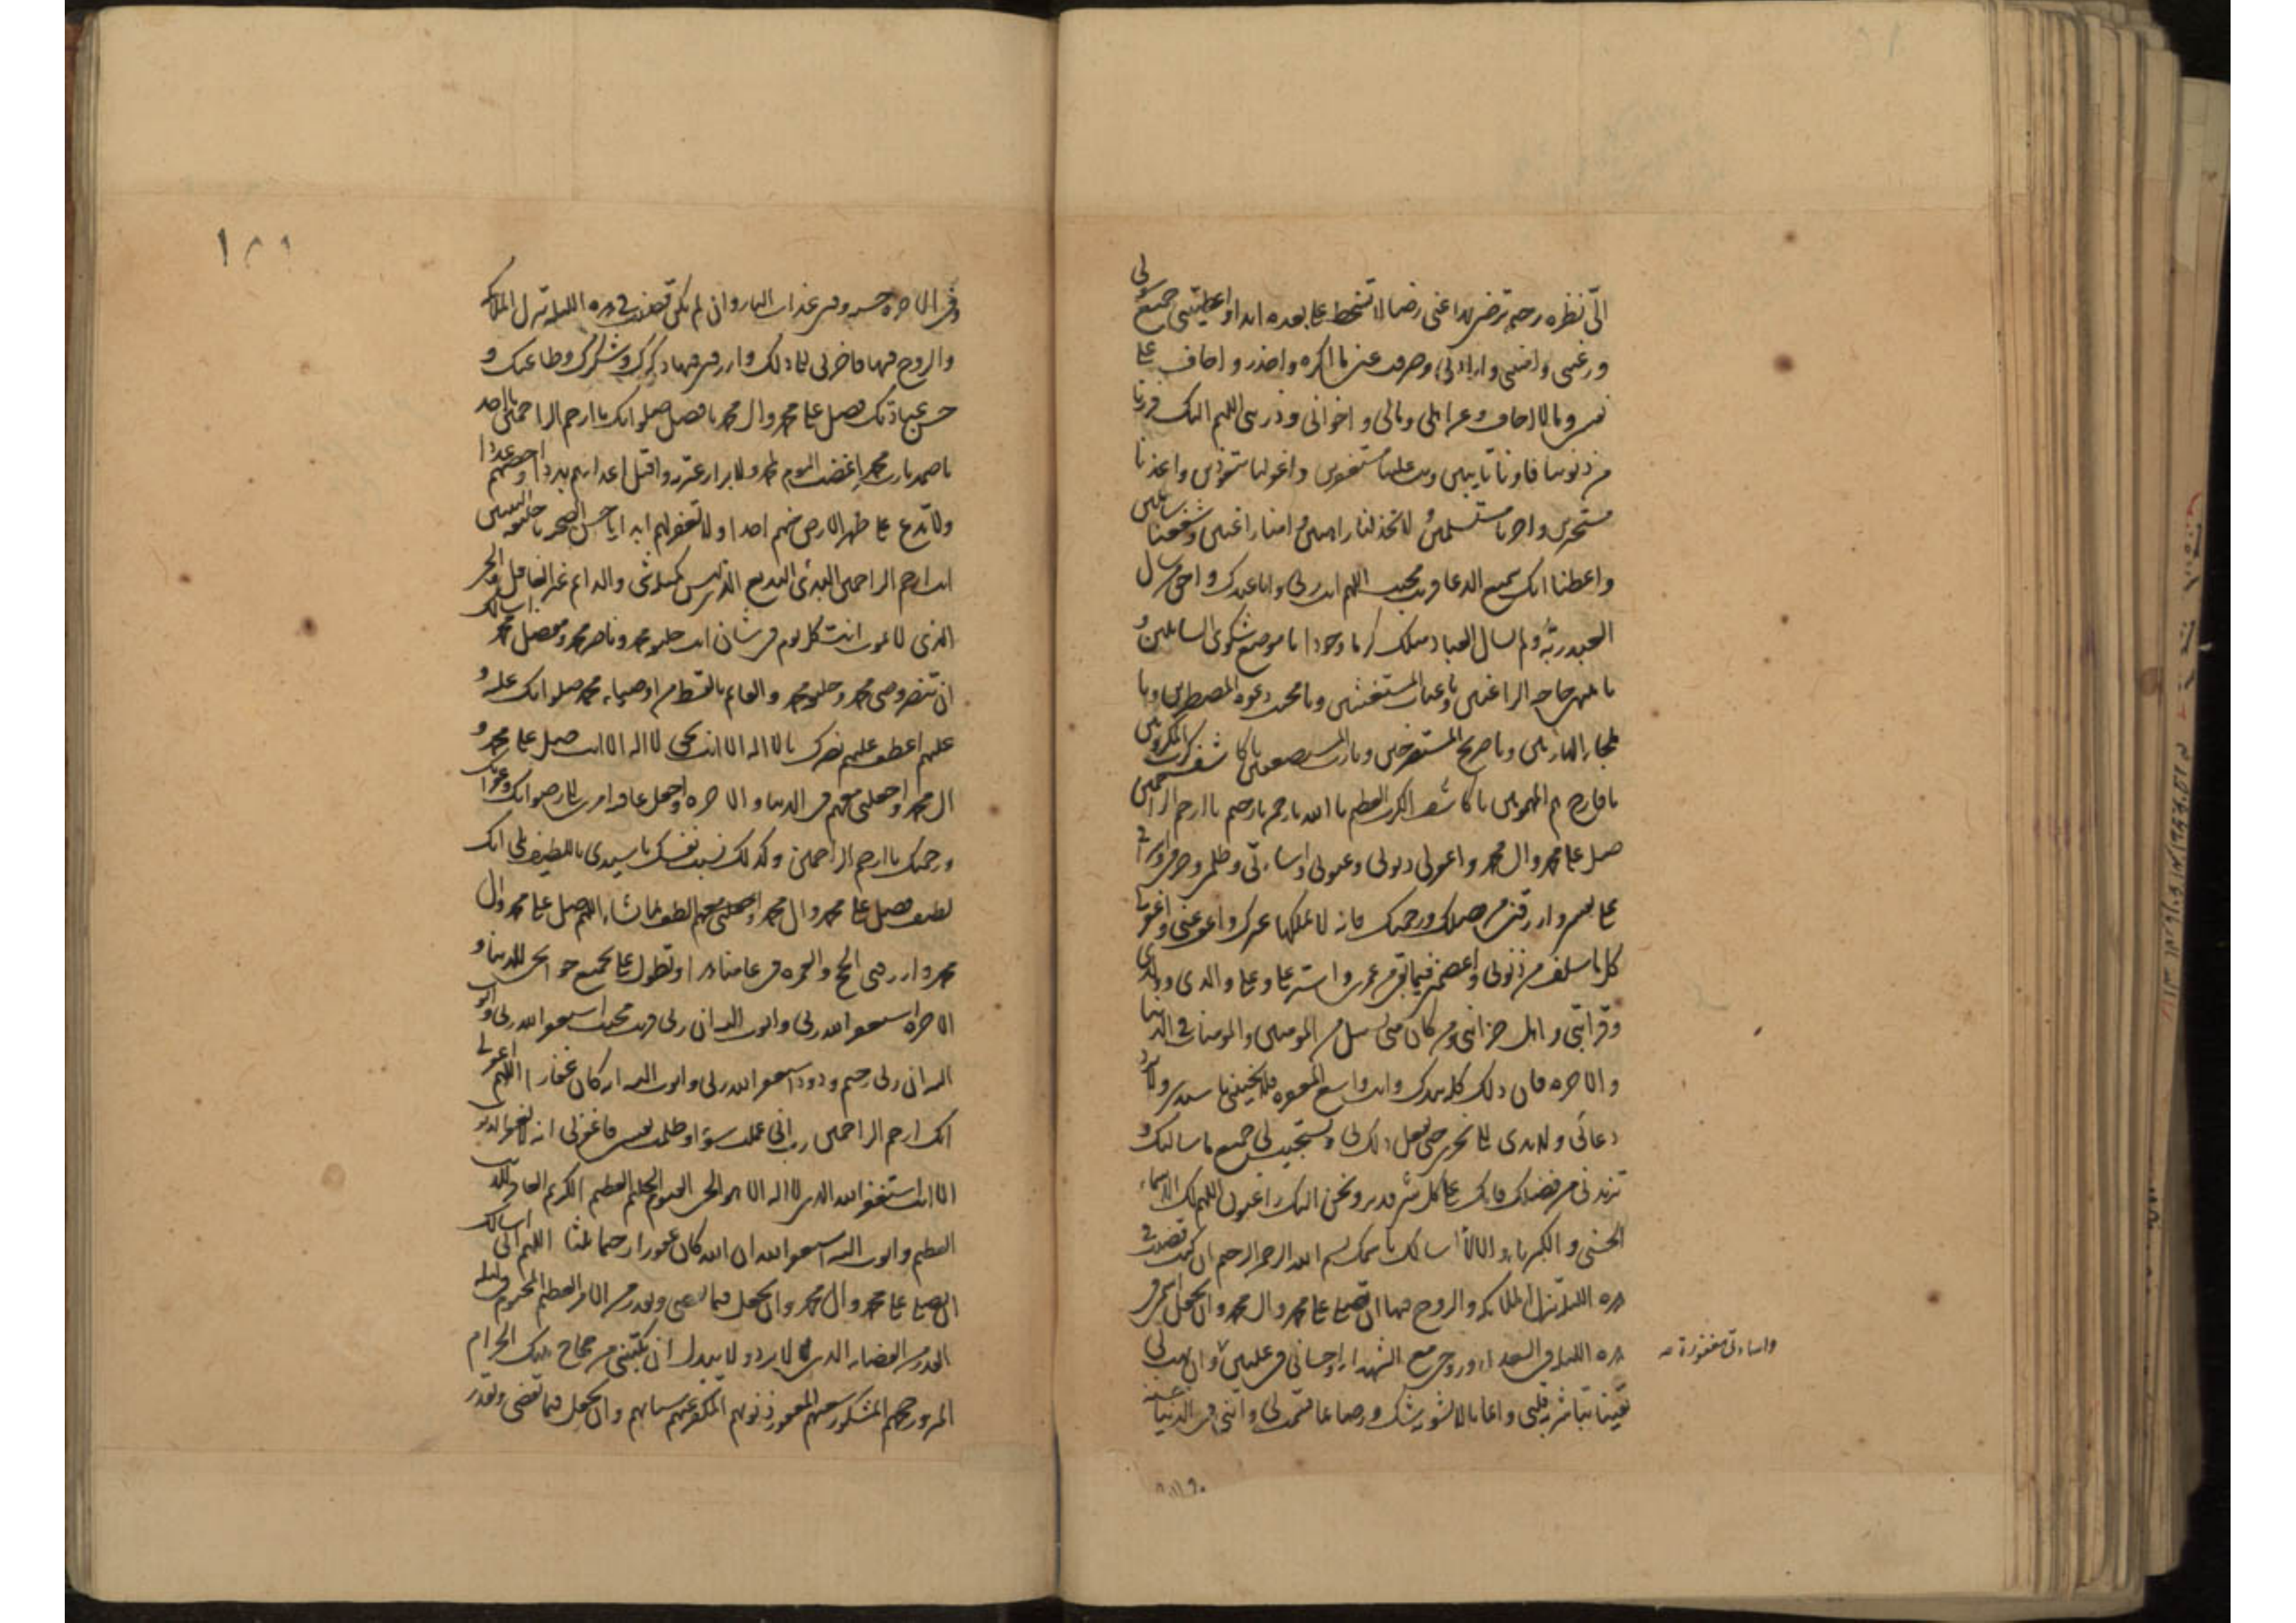 الیّ نظرة رحیمة ترضى بها عنی رضا لا تسخط علی بعده ابدا واعطیتنی جمیع سؤلی
ورغبتی وامنیتی وارادتی وصرفت عنی ما اکره واحذر واخاف علی
نفسی وما لا اخاف وعن اهلی ومالی واخوانی وذریتی اللهم الیک فررنا
من ذنوبنا فاونا تایبین وتب علینا مستغفرین واغفر لنا متعوذین واعذنا
مستجیرین واجرنا مستسلمین ولا تخذلنا راهبین وامنا راغبین وشفعنا سائلین
واعطنا انک سمیع الدعا قریب مجیب اللهم انت ربی وانا عبدک واحق من سال
العبد ربه ولم یسال العباد مثلک کرما وجودا یا موضع شکوى السائلین و
یا منتهى حاجة الراغبین ویا غیاث المستغیثین ویا مجیب دعوة المضطرین ویا
ملجأ الهاربین ویا صریخ المستصرخین ویا رب المستضعفین یا کاشف کرب المکروبین
یا فارج هم المهمومین یا کاشف الکرب العظیم یا الله یا رحمن یا رحیم یا ارحم الراحمین
صل على محمد وال محمد واغفر لی ذنوبی وعیوبی واساءتی وظلمی وجرمی واسرافی
على نفسی وارزقنی من فضلک ورحمتک فانه لا یملکها غیرک واعف عنی واغفر لی
کل ما سلف من ذنوبی واعصمنی فیما بقی من عمری واستر علی وعلى والدی وولدی
وقرابتی واهل حزانتی ومن کان منی بسبیل من المومنین والمومنات فی الدنیا
والاخرة فان ذلک کله بیدک وانت واسع المغفرة فلا تخیبنی یا سیدی ولا ترد
دعائی ولا یدی الى نحری حتى تفعل ذلک بی وتستجیب لی جمیع ما سالتک و
تزیدنی من فضلک فانک على کل شی قدیر ونحن الیک راغبون اللهم لک الاسماء
الحسنى والکبریاء والالاء اسالک باسمک بسم الله الرحمن الرحیم ان کنت قضیت فی
هذه اللیلة تنزل الملائکة والروح فیها ان تصلی على محمد وال محمد وان تجعل اسمی فی
هذه اللیلة فی السعداء وروحی مع الشهداء واحسانی فی علیین وان تهب لی
واساءتی مغفورة
یقینا تباشر به قلبی وایمانا لا یشوبه شک ورضا بما قسمت لی واتنی فی الدنیا حسنة
۱۸۹
وفی الاخرة حسنة وقنی عذاب النار وان لم تکن قضیت فی هذه اللیلة تنزل الملائکة
والروح فیها فاخرنی الى ذلک وارزقنی فیها ذکرک وشکرک وطاعتک و
حسن عبادتک فصل على محمد وال محمد بافضل صلواتک یا ارحم الراحمین یا احد
یا صمد یا رب محمد اغضب الیوم لمحمد ولابرار عترته واقتل اعداءهم بددا واحصهم عددا
ولا تدع على ظهر الارض منهم احدا ولا تغفر لهم ابدا یا حسن الصحبة یا خلیفة النبیین
انت ارحم الراحمین البدئ البدیع الذی لیس کمثلک شی والدائم غیر الغافل والحی
الذی لا یموت انت کل یوم فی شان انت خلیفة محمد وناصر محمد ومفضل محمد اسالک
ان تنصر وصی محمد وخلیفة محمد والقائم بالقسط من اوصیاء محمد صلواتک علیه و
علیهم اعطف علیهم نصرک یا لا اله الا انت بحق لا اله الا انت صل على محمد و
ال محمد واجعلنی معهم فی الدنیا والاخرة واجعل عاقبة امری الى رضوانک وغفرانک
ورحمتک یا ارحم الراحمین وکذلک نسبت نفسک یا سیدی باللطیف بلى انک
لطیف فصل على محمد وال محمد والطف لما تشاء اللهم صل على محمد وال
محمد وارزقنی الحج والعمرة فی عامنا هذا وتطول علی بجمیع حوائجی للدنیا و
الاخرة استغفر الله ربی واتوب الیه ان ربی قریب مجیب استغفر الله ربی واتوب
الیه ان ربی رحیم ودود استغفر الله ربی واتوب الیه انه کان غفارا اللهم اغفر لی
انک ارحم الراحمین رب انی عملت سوءا وظلمت نفسی فاغفر لی انه لا یغفر الذنوب
الا انت استغفر الله الذی لا اله الا هو الحی القیوم الحلیم العظیم الکریم الغافر للذنب
العظیم واتوب الیه استغفر الله ان الله کان غفورا رحیما ثلثا اللهم انی اسالک
ان تصلی على محمد وال محمد وان تجعل فیما تقضی وتقدر من الامر العظیم المحتوم فی لیلة
القدر من القضاء الذی لا یرد ولا یبدل ان تکتبنی من حجاج بیتک الحرام
المبرور حجهم المشکور سعیهم المغفور ذنوبهم المکفر عنهم سیئاتهم وان تجعل فیما تقضی وتقدر